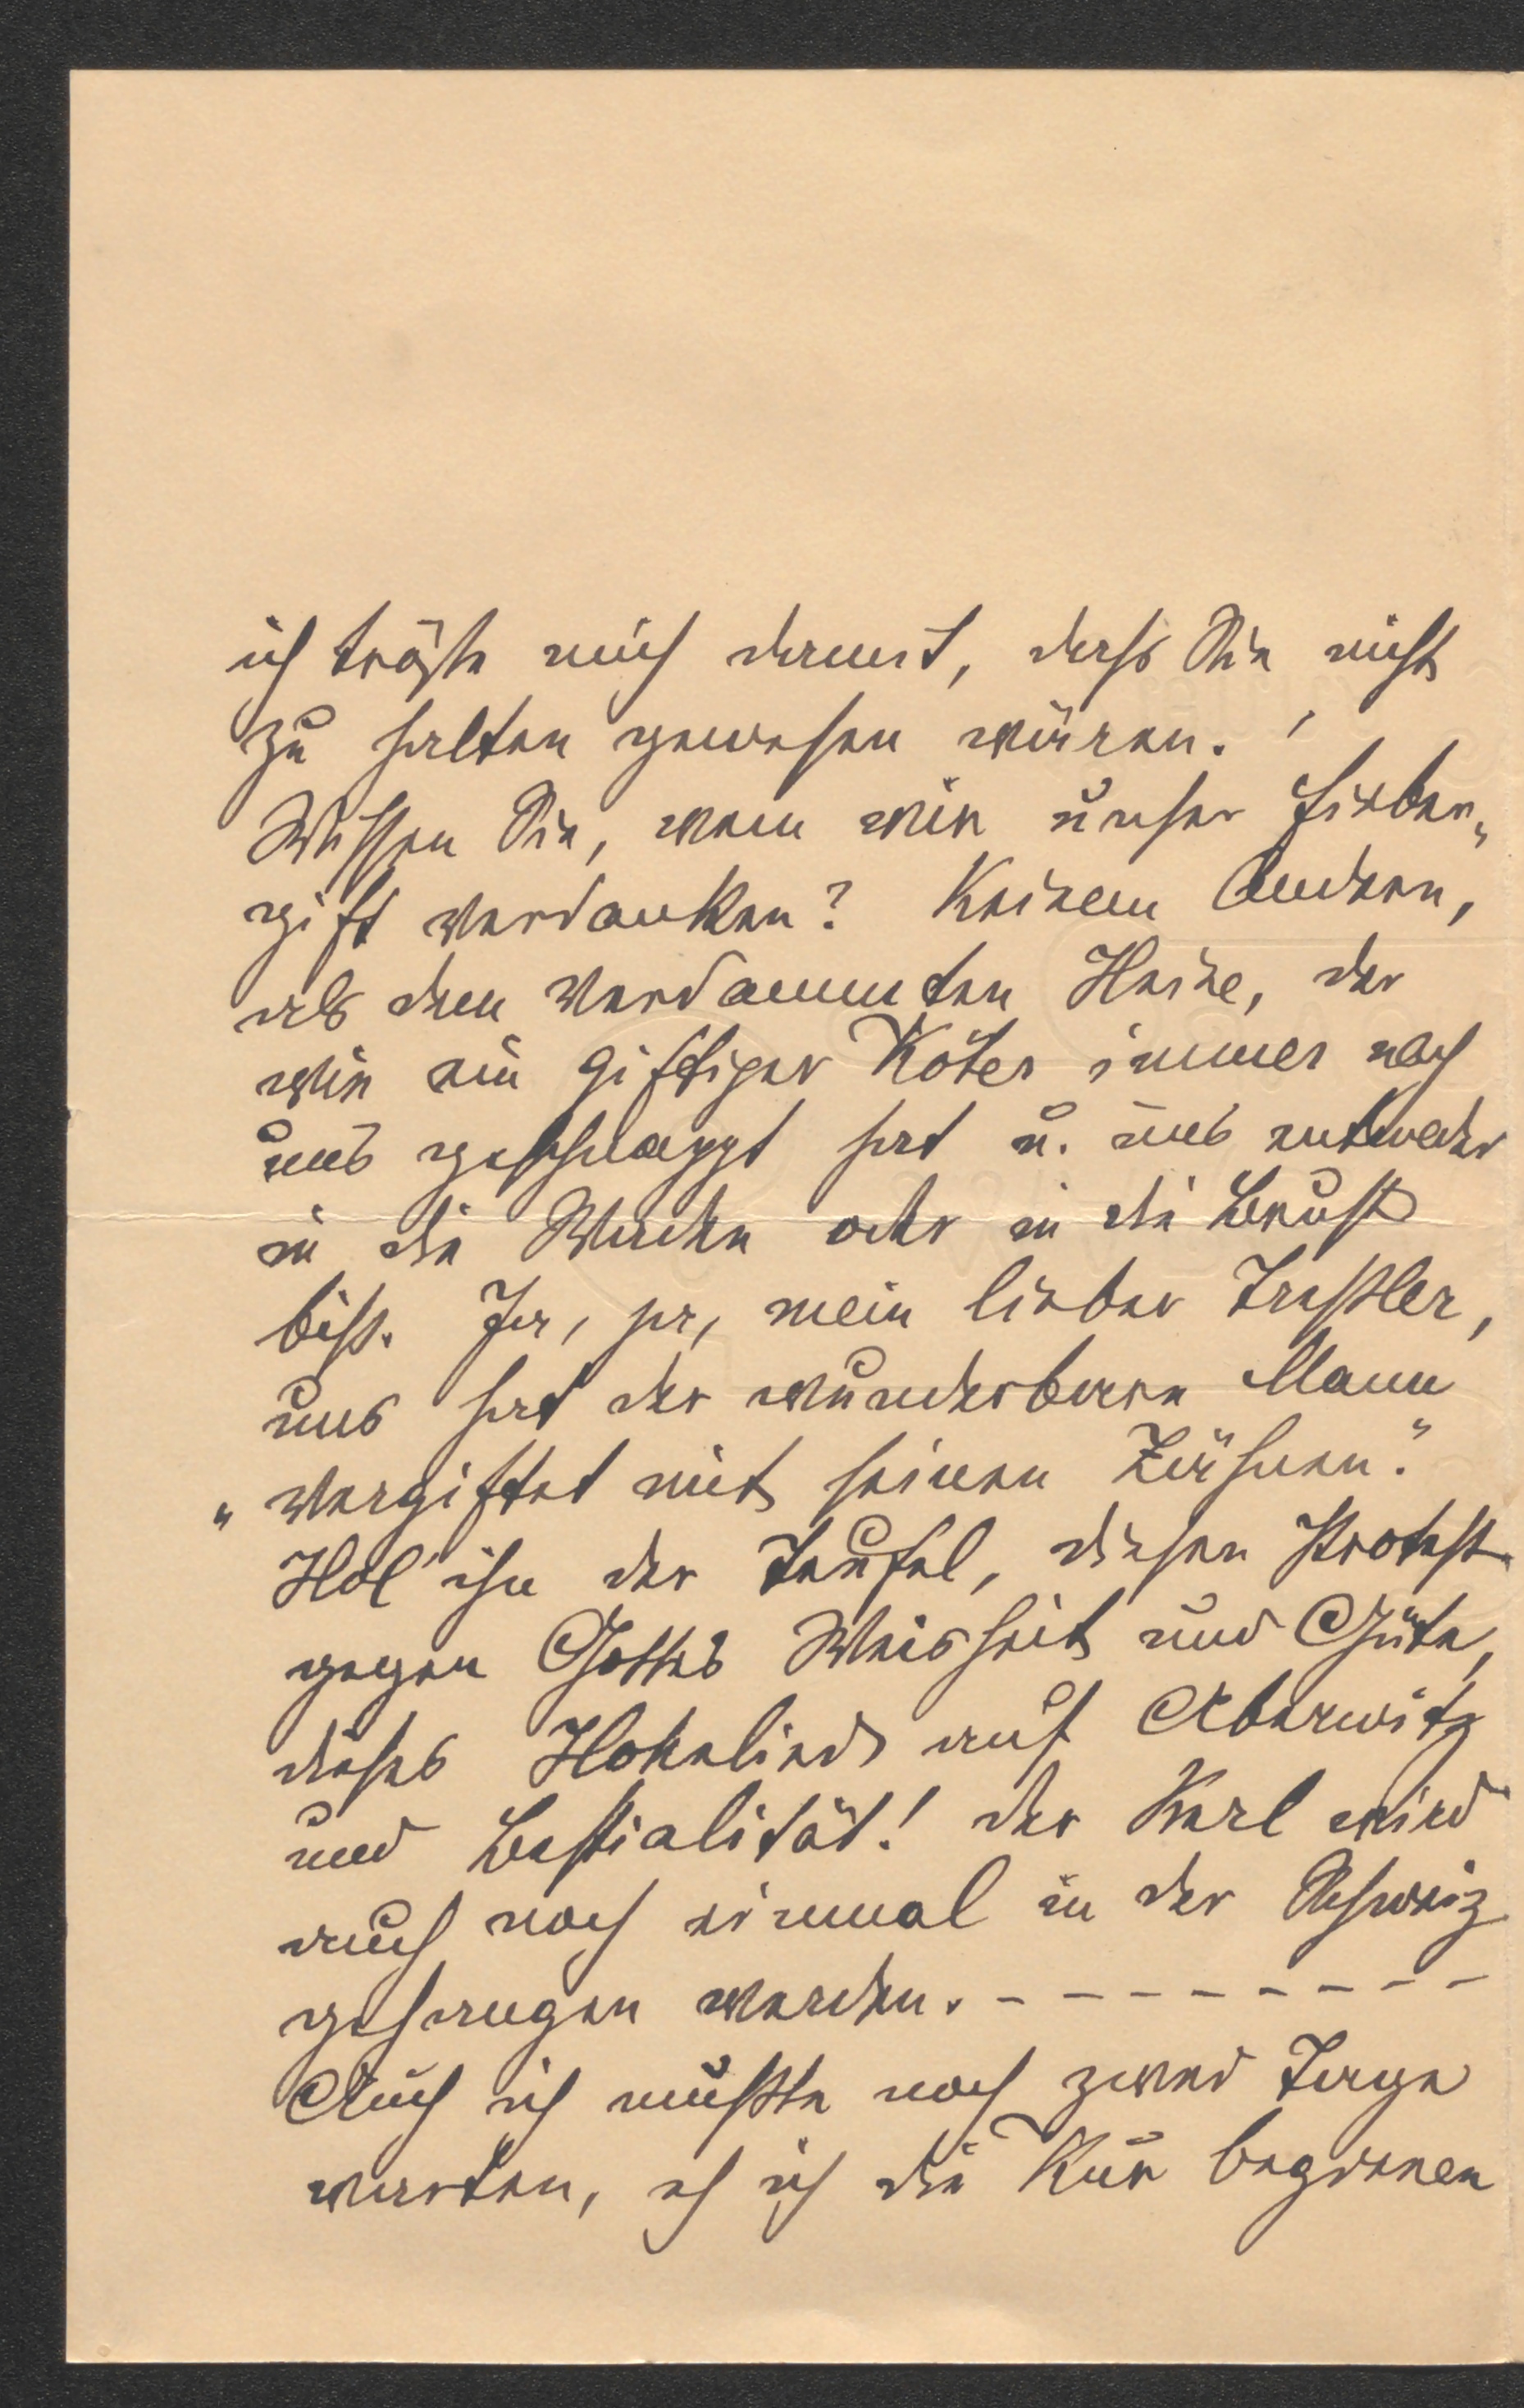 ich tröste mich damit, dass Sie nicht
zu halten gewesen wären.
Wissen Sie, wem wir unser Fieber„
gift verdanken? Keinem Andern,
als dem verdammten Heine, der
wie ein giftiger Köter immer nach
uns geschnappt hat u. uns entweder
in die Waden oder in die Brust
biss. Ja, ja, mein lieber
uns hat der wunderbare Mann
„vergiftet mit seinen Zähnen."
Hol' ihn der Teufel, diesen Protest
gegen Gottes Weisheit und Güte,
dieses Hohelied auf Aberwitz
und Bestialität! der Kerl wird
auch noch einmal in der Schweiz
gefangen werden. - - - - - - - - -
Auch ich musste noch zwei Tage
warten, eh ich die Kur beginnen